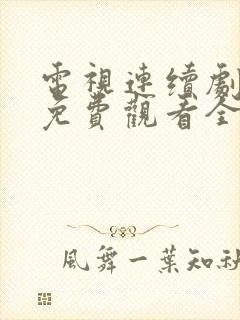 電視連續劇
免費觀看全
風舞一葉知秋